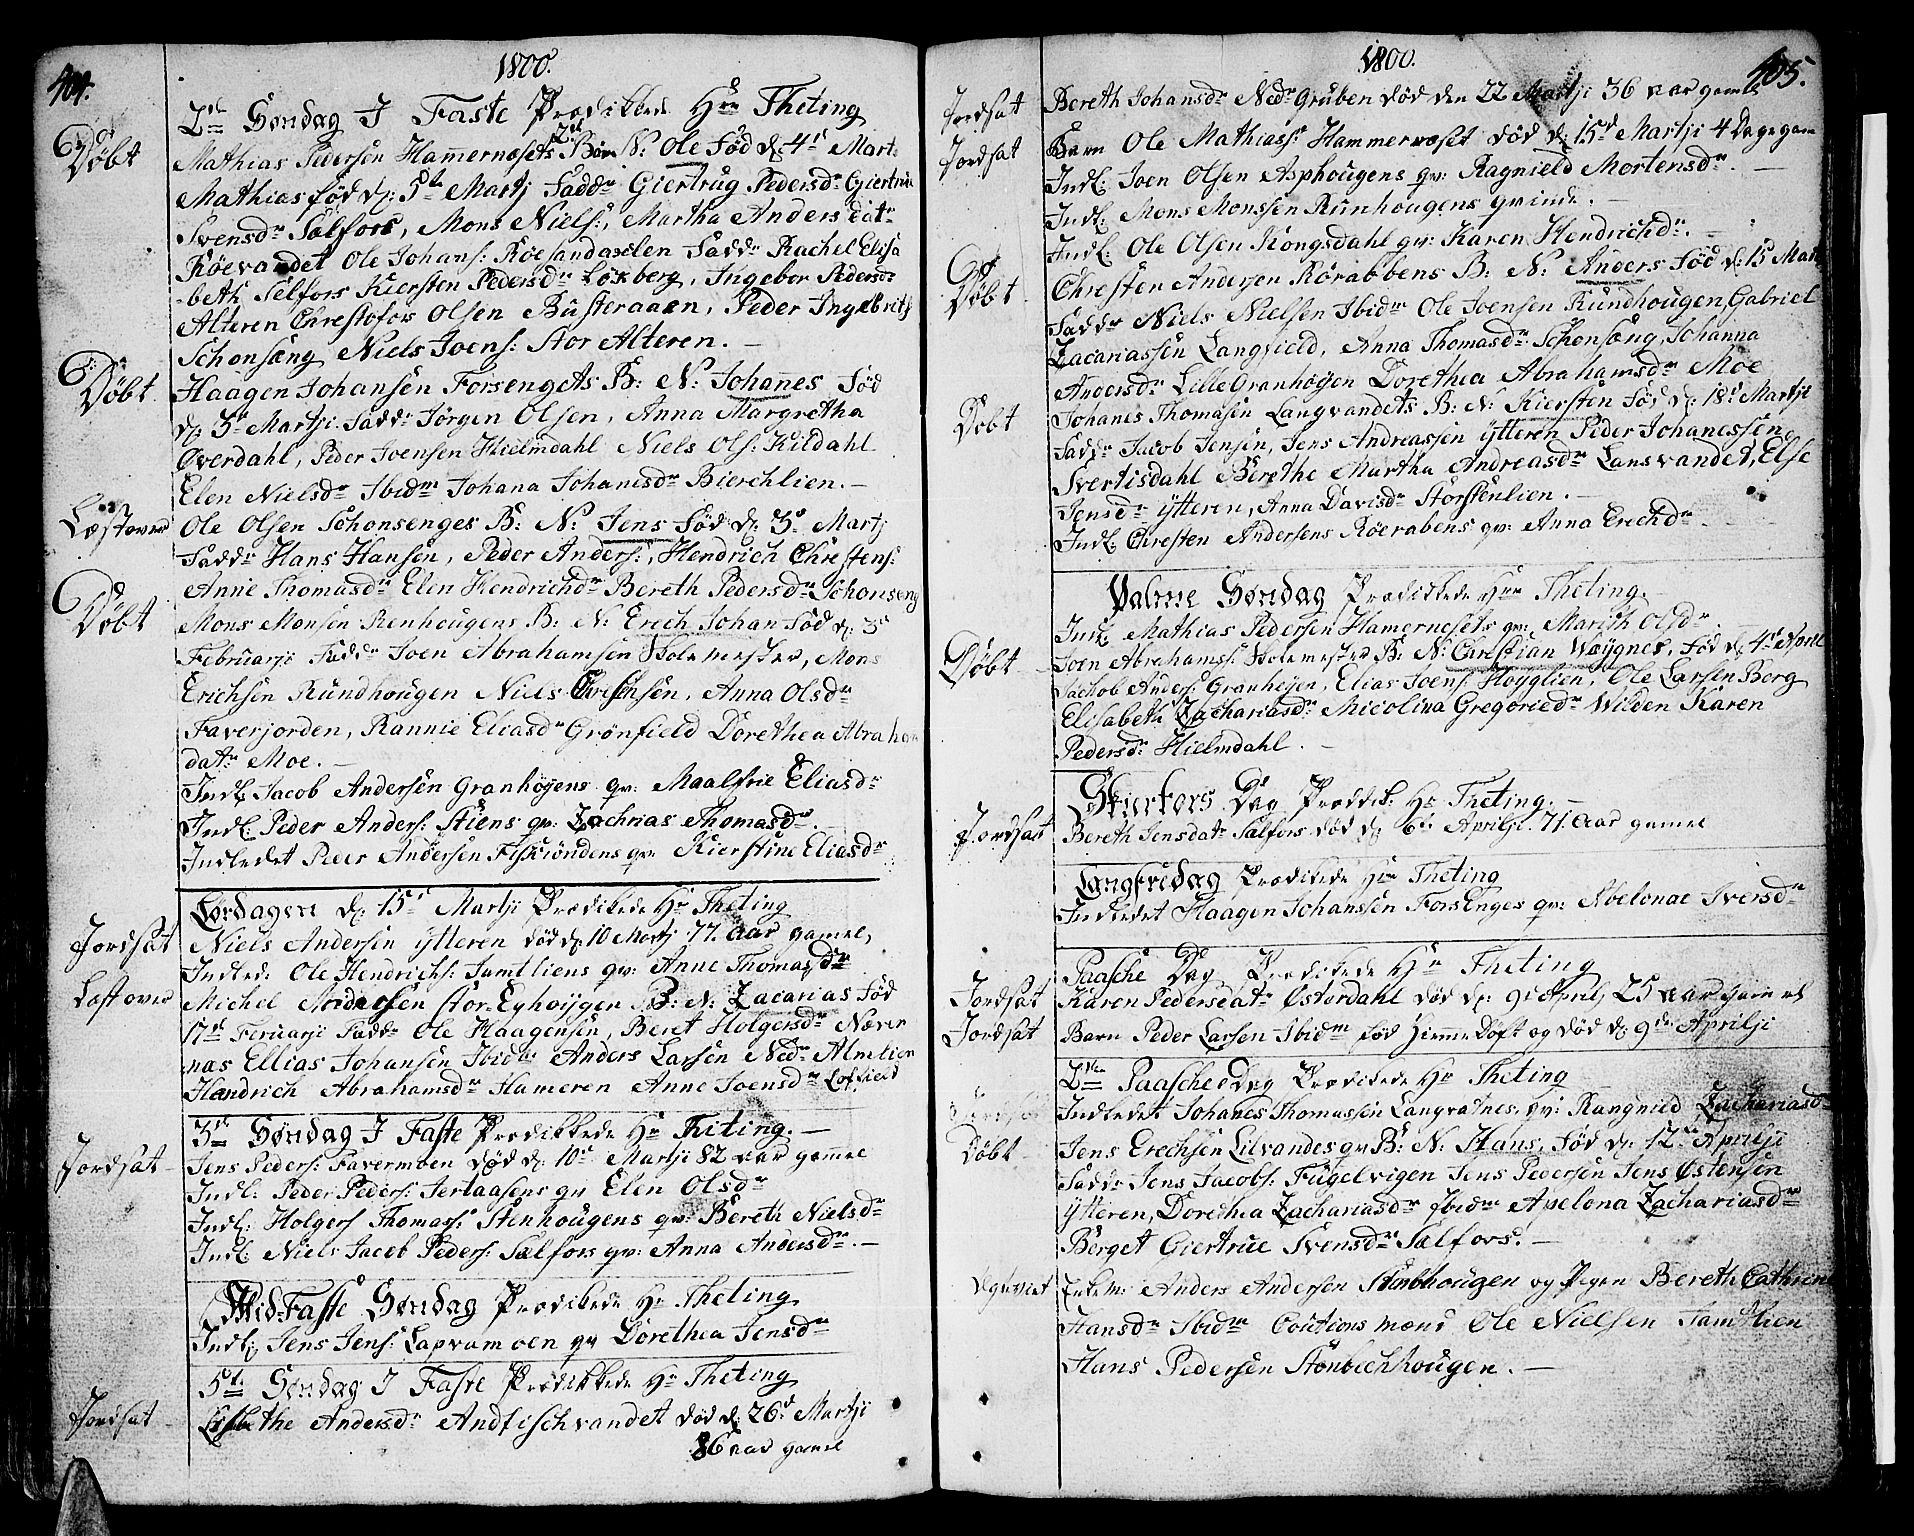 404.
1800.
2den Søndag I Faste Prædikkede Hr Theting
Døbt
Mathias Pedersen Hammernæsets 2de Børn N: Ole Fød d: 4de Mart:
Mathias fød d: 5te Martj Fadd: Giertrug Pedersd: Giertrue
Svensdr Sælfors, Mons Niels:, Martha Andersdatr
Røevandet Ole Johans: Røesandaselen Fadd: Rachel Elisa
-beth Selfors Kiersten Pedersdr Løkberg, Ingebor Pedersdr
Alteren Christofor Olsen Busteraaen, Peder Ingebrits
Schonsæng Niels Joens: Stor Alteren. –
Døbt.
Haagen Johansen Forsengets B: N: Johannes Fød
d: 3de Martji Fadd: Jørgen Olsen, Anna Margretha
Øverdahl, Peder Joensen Hielmdahl Niels Ols: Kildahl
Elen Nielsdr Ibidm Johana Johansdr Bierchlien. –
Læst over
Ole Olsen Schonsenges B: N: Jens Fød d: 3de Martj
Fadd: Hans Hansen, Peder Anders:, Hendrich Christens:
Anne Thomasdr Elen Hendrichdr Bereth Pedersdr Schonseng
Døbt
Mons Monsen Renhougens B: N: Erech Johan Fød d: 3de
Februarji Fadd: Joen Abrahamsen Skolemester, Mons
Erichsen Rundhougen Niels Chrisensen, Anna Olsdr
Faverjorden, Rannie Eliasdr Grönfield Dorethea Abraham
datr Moe. –
Indl: Jacob Andersen Granhøyens qv: Maalfrie Eliasdr
Indl: Peder Anders: Stiens qv: Zachrias Thomasdr.
Indledet Peer Andersen Fiskiöndens qv: Kierstine Eliasdr
Lørdagen d: 15de Martji Prædikede Hr Theting
Jordsat
Niels Andersen ytteren død d: 10 Martj 77. aar gamel,
Indled: Ole Hendrichs: Jamtliens qv: Anne Thomasdr
Læst over
Michel Andersen Stor-Eghøygen B: N: Zacarias Fød
17de Feruarji Fadd: Ole Haagensen, Beret Holgersdr Næver
næs Ellias Johansen Ibidm Anders Larsen Nedr Almlien
Handrich Abrahamsdr Hameren Anne Joensdr Loffield
3de Søndag I Faste Prædikkede Hr Theting. –
Jordsat
Jens Peders: Favermoen død d: 10de Martji 82 aar gamel
Indl: Peder Peders: Jertaasens qv Elen Olsdr
Indl: Holgers Thomass: Stenhougens qv: Bereth Nielsdr
Indl: Niels Jacob Peders: Sælfors qv: Anna Andersdr. –
Mid-Faste Søndag Prædikede Hr Theting
Indl: Jens Jens: Lapvamoen qv Dorethea Jensdr
5te Søndag I Faste Prædikkede Hr Theting
Jordsat
Lisbethe Andersdr Andfischvandet død d: 26de Martji
86 aar gamel
1800.
405.
Jordsat
Bereth Johansdr Nedr Gruben død den 22 Martji 36 aar gamel
Jordsat
Barn Ole Mathiass: Hammernæset død d: 15de Martji 4 Dage gam
Indl: Joen Olsen Asphougens qv: Ragnield Mortensdr. –
Indl: Mons Monssen Runhougens qvinde. –
Indl: Ole Olsen Kongsdahl qv: Karen Hendrichdr.
Døbt
Chresten Andersen Rörabbens B: N: Anders Fød d: 15 Martj
Fadd: Niels Nielsen Ibidm Ole Joensen Rundhougen, Gabriel
Zacariassen Langfield, Anna Thomasdr Schonsæng, Johanna
Andersdr Lille Granhøyen Dorethea Abrahamsdr Moe
Døbt
Johanes Thomasen Langvandets B: N: Kiersten Fød d: 18de Martji
Fadd: Jacob Jensen, Jens Andreassen ytteren Peder Johanessen
Svertisdahl Berethe Martha Andreasdr Lansvandet, Else
Jensdr ytteren, Anna Davisdr Storstenlien. –
Indl: Christen Andersens Röerabens qv: Anna Erechdr
Palme Søndag Prædikkede Hr Theting.
Indl: Mathias Pedersen Hamernesets qv: Marith Olsdr.
Døbt
Joen Abrahamss: Skolemester B: N: Chrestian Wøygnes, Fød d: 4de April
Jachob Anders: Granheyen, Elias Joens: Høyglien, Ole Larsen Borg
Elisabeth Zachariasdr Micolina Gregoriedr Wilden Karen
Pedersdr Hielmdahl. –
Skiertors Dag Prædik: Hr Theting. –
Jordsatt
Bereth Jensdatr Sælfors død d: 6te Aprilji 71 aar gamel
Langfredag Prædikede Hr Theting
Indledet Haagen Johanssen Forsenges qv: Abelonae Iversdr
Paasche Dag Prædikede Hr Theting
Jordsat
Karen Pedersdatr Østerdahl død d: 9de April, 25 aar gamel
Jordsat
Barn Peder Larsen Ibidm fød hiemmedøft og død d: 9de Aprilji
2den Paaschedag Prædikede Hr Theting
Indledet Johanes Thomassen Langvatnes, qv: Rangnied Zachariasdr
Døbt
Jens Erechsen Lilvandes qv B: N: Hans, Fød d: 12te Aprilji
Fadd: Jens Jacobs: Fugelvigen Jens Pedersen Jens Østensen
ytteren, Dorethea Zachariasdr Ibidm Apelona Zachariasdr
Berget Giertrue Svensdr Sælfors. –
Anders Andersen Stenbhougen og Pigen Bereth Cathrin
Hansdr Ibidm Coutions mend Ole Nielsen Jamtlien
Hans Pedersen Stenbechhougen. –